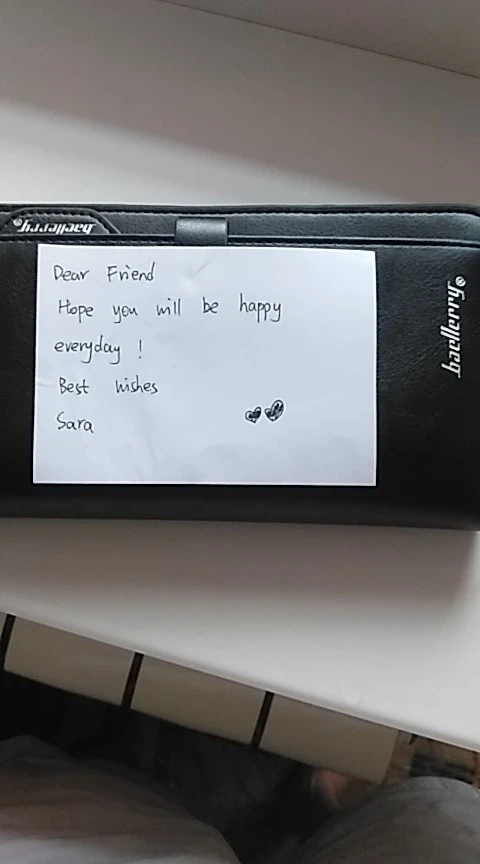 baellerry
baellerry
Dear Friend
Hope you will be happy
everyday !
Best wishes
Sara